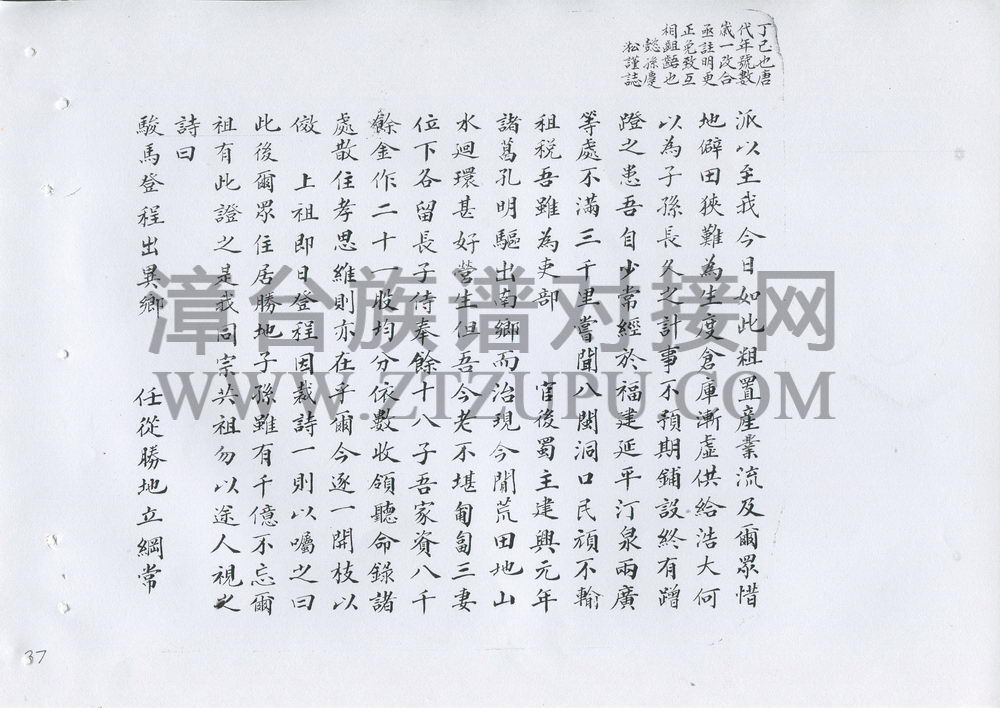 丁巳也唐
代年號數
歲一改合
亟註明更
正免致互
相齟齬也
懿孫慶
松謹誌
派以至我今日如此粗置產業流及爾眾惜
地僻田狹難為生度倉庫漸虛供給浩大何
以為子孫長久之計事不預期鋪設終有蹭
蹬之患吾自少常經於福建延平汀泉兩廣
等處不滿三千里嘗聞八閩洞口民頑不輸
租稅吾雖為吏部 官後蜀主建興元年
諸葛孔明驅出南鄉而治現今閒荒田地山
水迴環甚好營生但吾今老不堪匍匐三妻
位下各留長子侍奉餘十八子吾家資八千
餘金作二十一股均分依數收領聽命錄諸
處散住孝思維則亦在乎爾今逐一開枝以
傚 上祖即日登程因裁詩一則以囑之曰
此後爾眾住居勝地子孫雖有千億不忘爾
祖有此證之是我同宗共祖勿以途人視之
詩曰
駿馬登程出異鄉 任從勝地立綱常
漳台族谱对接网
WWW.ZTZUPU.COM
37